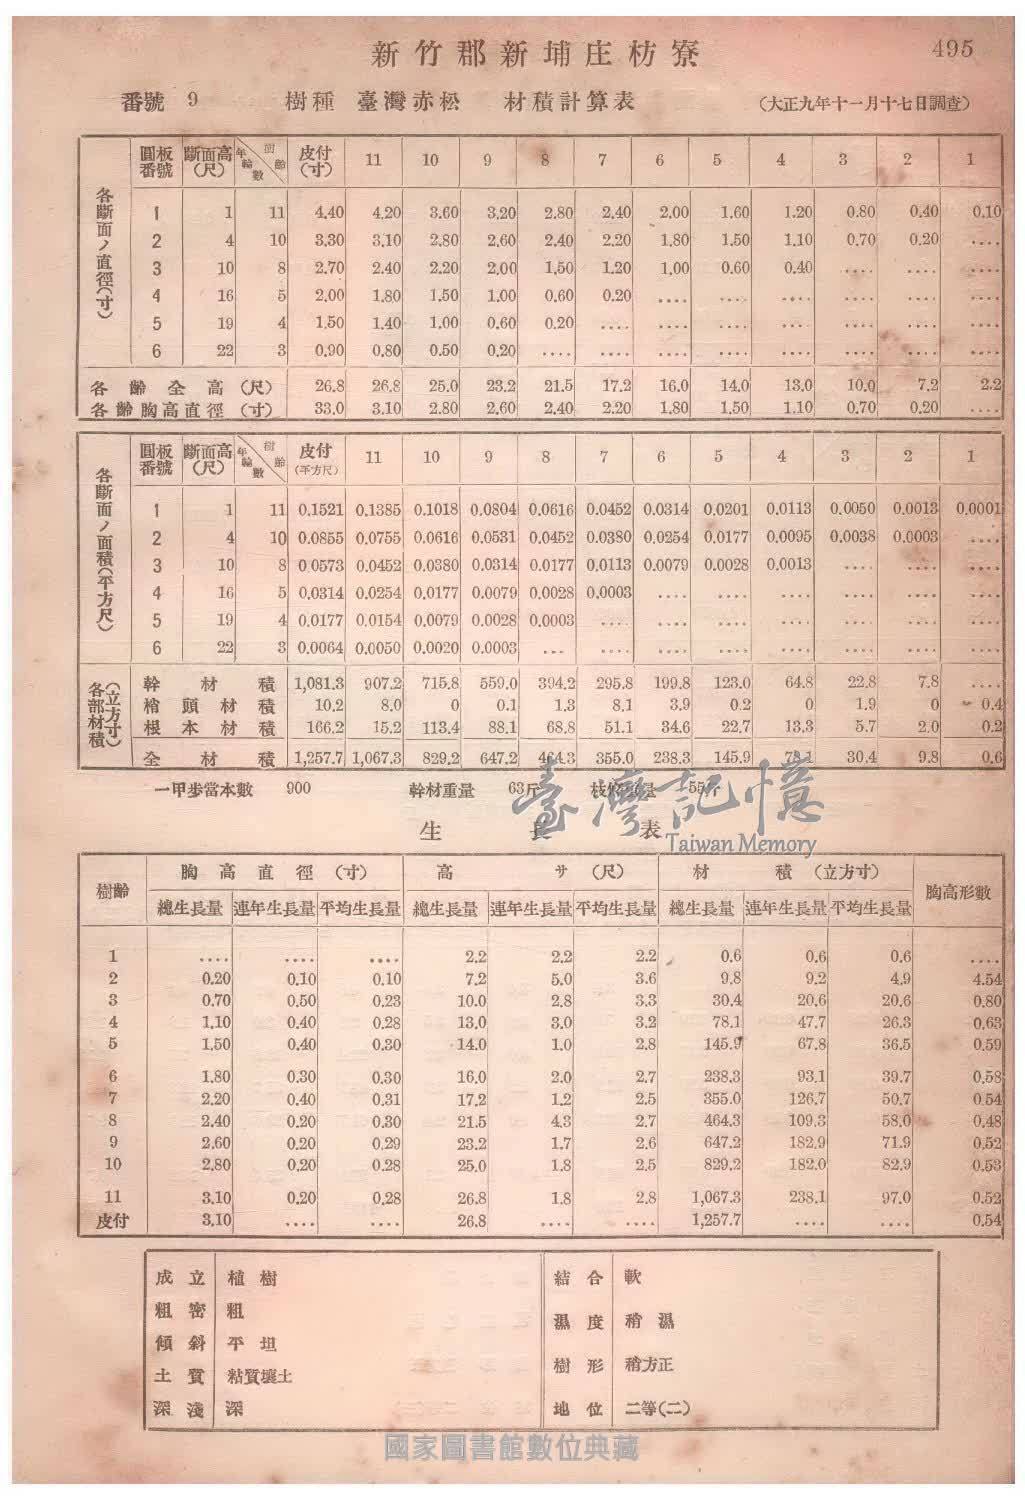 新竹郡新埔庄枋寮 495
番號 9 樹種 臺灣赤松 材積計算表 (大正九年十一月十七日調査)
各斷面ノ直徑(寸)
圓板番號 斷面高(尺) 年輪數 樹齡 皮付(寸) 11 10 9 8 7 6 5 4 3 2 1
1 1 11 4.40 4.20 3.60 3.20 2.80 2.40 2.00 1.60 1.20 0.80 0.40 0.10
2 4 10 3.30 3.10 2.80 2.60 2.40 2.20 1.80 1.50 1.10 0.70 0.20 ....
3 10 8 2.70 2.40 2.20 2.00 1.50 1.20 1.00 0.60 0.40 .... .... ....
4 16 5 2.00 1.80 1.50 1.00 0.60 0.20 .... .... .... .... .... ....
5 19 4 1.50 1.40 1.00 0.60 0.20 .... .... .... .... .... .... ....
6 22 3 0.90 0.80 0.50 0.20 .... .... .... .... .... .... .... ....
各齡全高(尺) 26.8 26.8 25.0 23.2 21.5 17.2 16.0 14.0 13.0 10.0 7.2 2.2
各齡胸高直徑(寸) 33.0 3.10 2.80 2.60 2.40 2.20 1.80 1.50 1.10 0.70 0.20 ....
各斷面ノ面積(平方尺)
圓板番號 斷面高(尺) 年輪數 樹齡 皮付(平方尺) 11 10 9 8 7 6 5 4 3 2 1
1 1 11 0.1521 0.1385 0.1018 0.0804 0.0616 0.0452 0.0314 0.0201 0.0113 0.0050 0.0013 0.0001
2 4 10 0.0855 0.0755 0.0616 0.0531 0.0452 0.0380 0.0254 0.0177 0.0095 0.0038 0.0003 ....
3 10 8 0.0573 0.0452 0.0380 0.0314 0.0177 0.0113 0.0079 0.0028 0.0013 .... .... ....
4 16 5 0.0314 0.0254 0.0177 0.0079 0.0028 0.0003 .... .... .... .... .... ....
5 19 4 0.0177 0.0154 0.0079 0.0028 0.0003 .... .... .... .... .... .... ....
6 22 3 0.0064 0.0050 0.0020 0.0003 ... .... .... .... .... .... .... ....
各部材積(立方寸)
幹材積 1,081.3 907.2 715.8 559.0 394.2 295.8 199.8 123.0 64.8 22.8 7.8 ....
梢頭材積 10.2 8.0 0 0.1 1.3 8.1 3.9 0.2 0 1.9 0 0.4
根本材積 166.2 15.2 113.4 88.1 68.8 51.1 34.6 22.7 13.3 5.7 2.0 0.2
全材積 1,257.7 1,067.3 829.2 647.2 464.3 355.0 238.3 145.9 78.1 30.4 9.8 0.6
一甲步當本數 900 幹材重量 63斤 重量 55斤
臺灣記憶
Taiwan Memory
生長表
樹齡 胸高直徑(寸) 高サ(尺) 材積(立方寸) 胸高形數
總生長量 連年生長量 平均生長量 總生長量 連年生長量 平均生長量 總生長量 連年生長量 平均生長量
1 .... .... .... 2.2 2.2 2.2 0.6 0.6 0.6 ....
2 0.20 0.10 0.10 7.2 5.0 3.6 9.8 9.2 4.9 4.54
3 0.70 0.50 0.23 10.0 2.8 3.3 30.4 20.6 20.6 0.80
4 1.10 0.40 0.28 13.0 3.0 3.2 78.1 47.7 26.3 0.63
5 1.50 0.40 0.30 14.0 1.0 2.8 145.9 67.8 36.5 0.59
6 1.80 0.30 0.30 16.0 2.0 2.7 238.3 93.1 39.7 0.58
7 2.20 0.40 0.31 17.2 1.2 2.5 355.0 126.7 50.7 0.54
8 2.40 0.20 0.30 21.5 4.3 2.7 464.3 109.3 58.0 0.48
9 2.60 0.20 0.29 23.2 1.7 2.6 647.2 182.9 71.9 0.52
10 2.80 0.20 0.28 25.0 1.8 2.5 829.2 182.0 82.9 0.53
11 3.10 0.20 0.28 26.8 1.8 2.8 1,067.3 238.1 97.0 0.52
皮付 3.10 .... .... 26.8 .... .... 1,257.7 .... .... 0.54
成立 植樹 結合 軟
粗密 粗
濕度 稍濕
傾斜 平坦
樹形 稍方正
土質 粘質壤土
深淺 深 地位 二等(二)
國家圖書館數位典藏